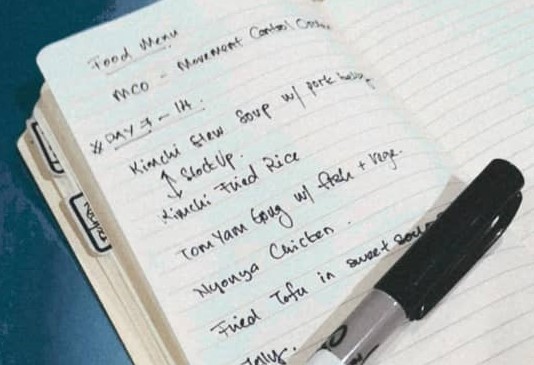 Food Menu
MCO - Movement Control Order
* DAY 7 - 14 :
Kimchi Stew Soup w/ pork belly
↑ Stock Up.
↓
Kimchi Fried Rice
Tom Yam Gong w/ fish + Vege.
Nyonya Chicken.
Fried Tofu in sweet sour
Jelly.